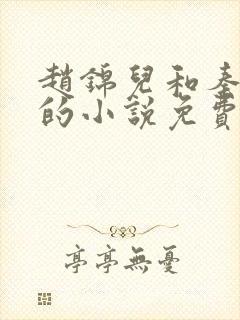 趙錦兒和秦
的小說免費
亭亭無憂